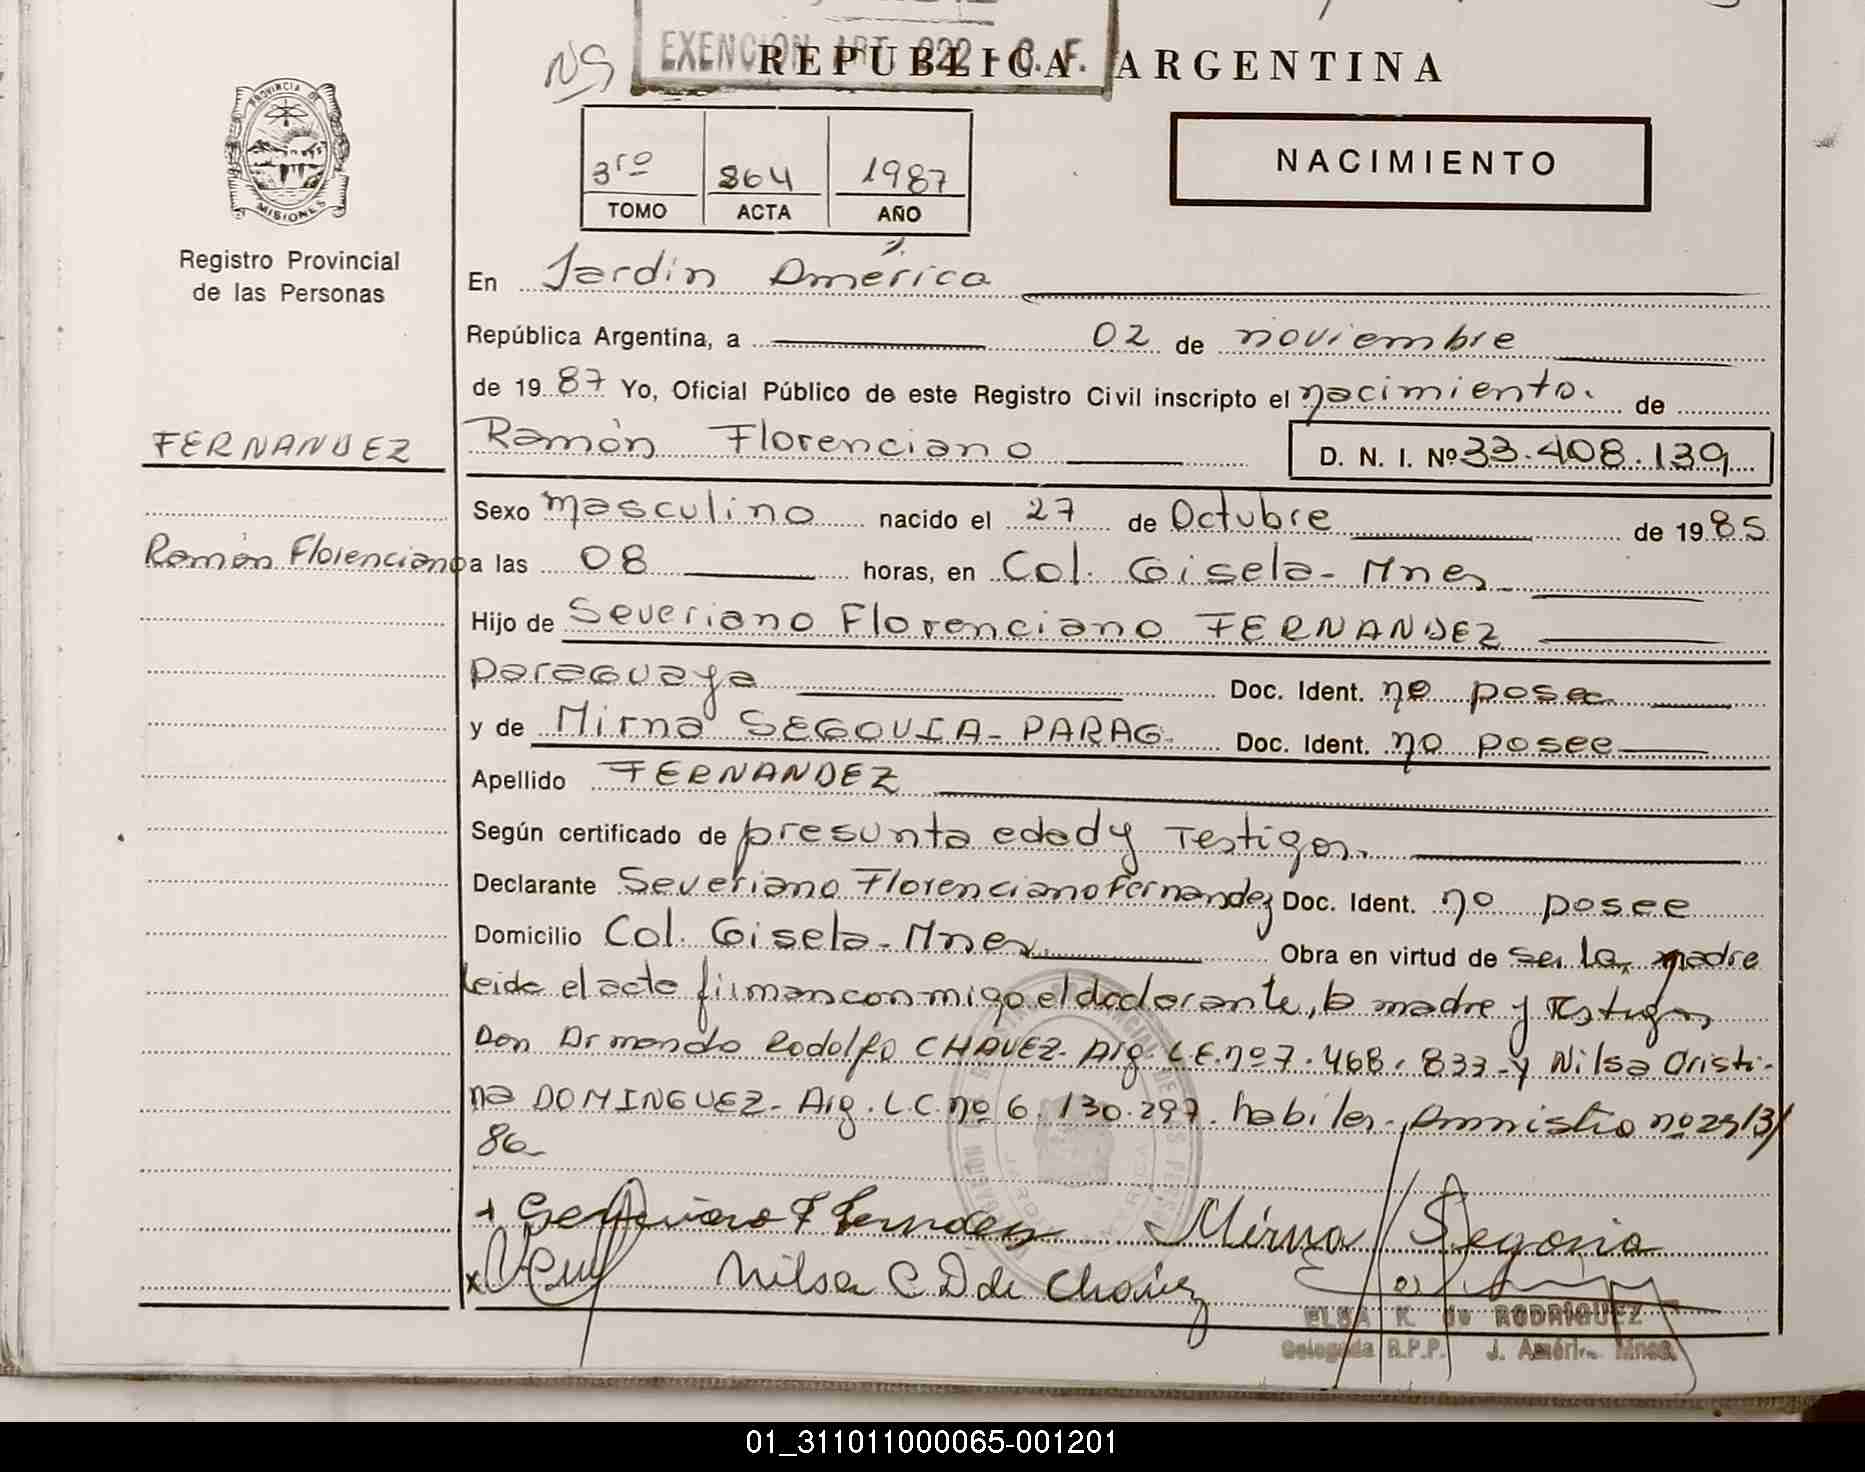 EXENCION ART. 222 - C. F.
REPUBLICA ARGENTINA
NS
PROVINCIA DE
MISIONES
Registro Provincial
de las Personas
3ro 864 1987
TOMO ACTA AÑO
NACIMIENTO
En Jardín América
República Argentina, a 02 de noviembre
de 1987 Yo, Oficial Público de este Registro Civil inscripto el nacimiento. de
FERNANDEZ
Ramón Florenciano D. N. I. Nº 33.408.139
Sexo masculino nacido el 27 de Octubre de 1985
Ramón Florenciano
a las 08 horas, en Col. Gisela - Mnes
Hijo de Severiano Florenciano FERNANDEZ
paraguaya Doc. Ident. no posee
y de Mirna SEGOVIA - PARAG. Doc. Ident. no posee
Apellido FERNANDEZ
Según certificado de presunta edad y Testigos.
Declarante Severiano Florenciano Fernandez Doc. Ident. no posee
Domicilio Col. Gisela - Mnes. Obra en virtud de ser la madre
leida el acto firman conmigo el declarante, la madre y testigos
Don Armando Rodolfo CHAVEZ - Arg. L.E. nº 7.468.833 - y Nilsa Cristi-
na DOMINGUEZ - Arg. L.C. nº 6.130.297. habiles - Amnistia nº 25/3/
86 -
Severiano F Fernandez Mirna Segovia
Nilsa C D de Chavez
ELSA K. de RODRIGUEZ
Delegada R.P.P. J. América Mnes.
01_311011000065-001201